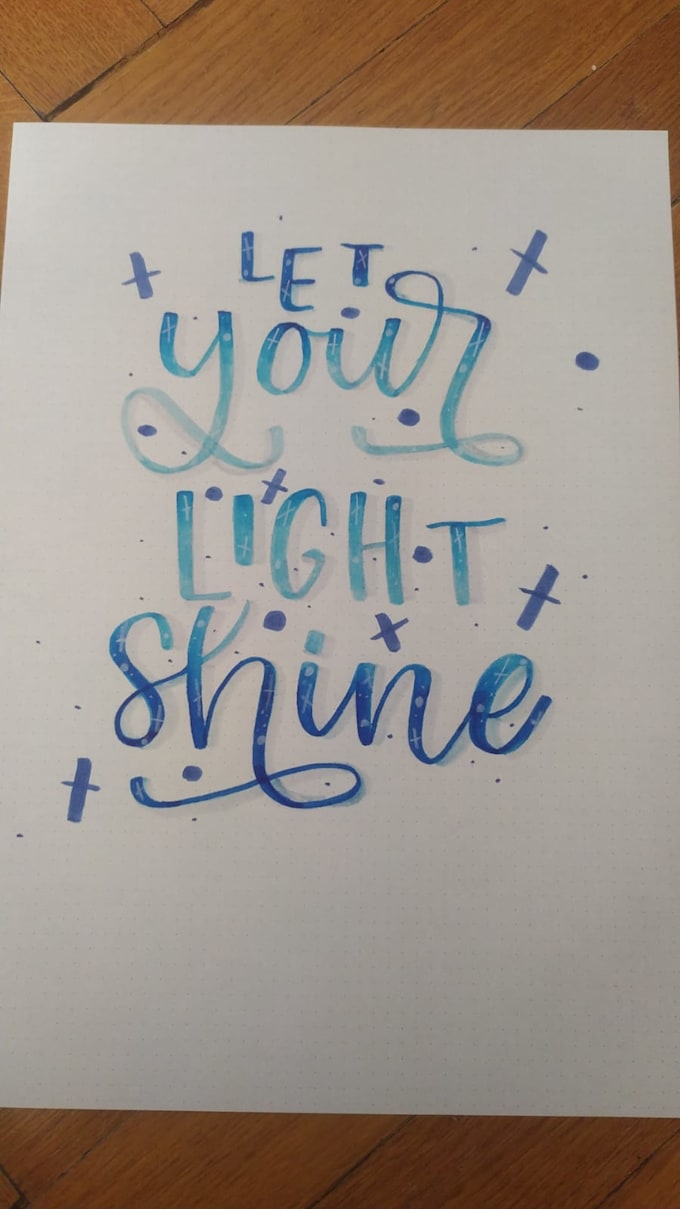 LET
your
LIGHT
shine